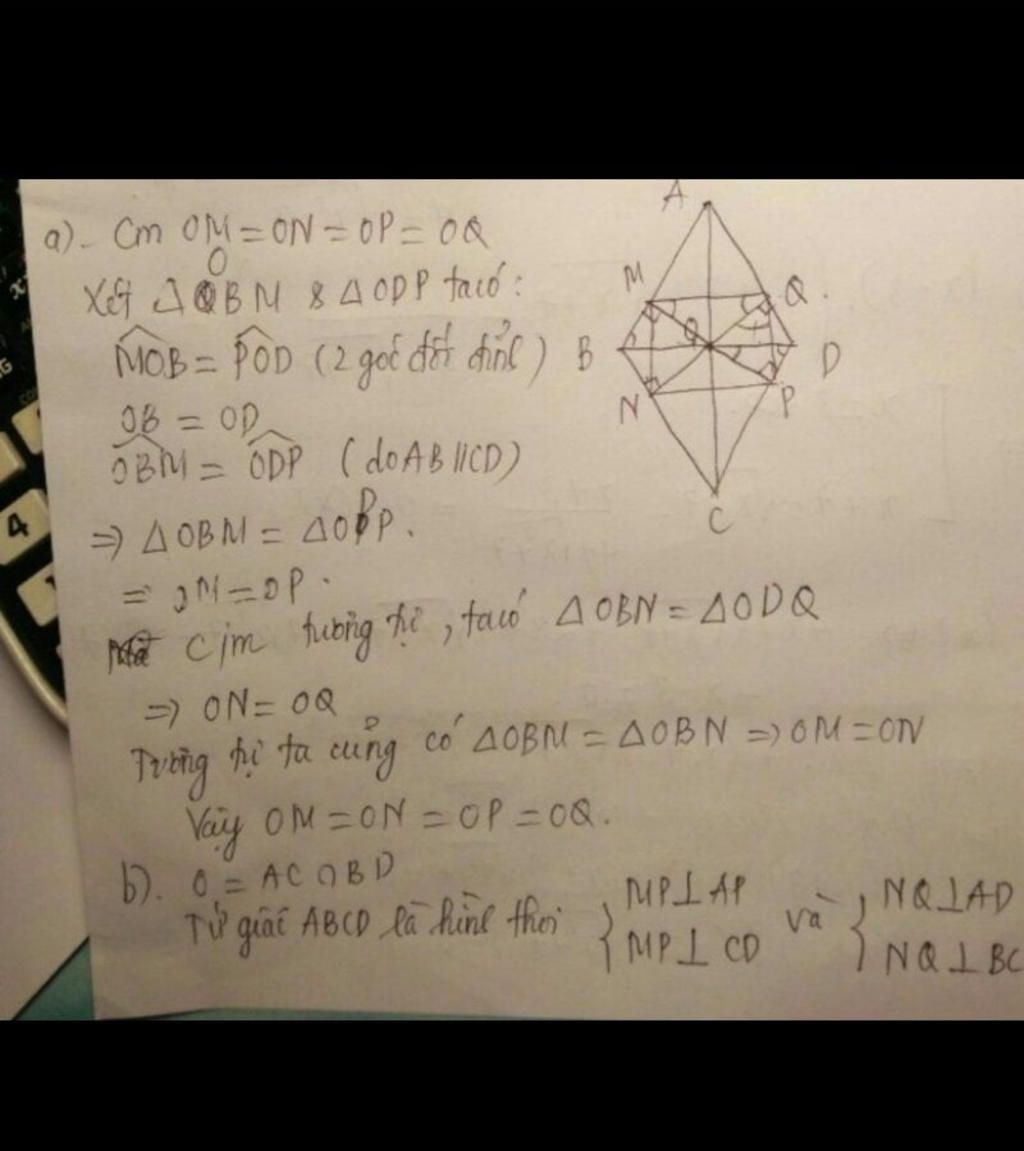 a). Cm OM = ON = OP = OQ
Xét ΔOBM & ΔODP ta có:
MOB = POD (2 góc đối đỉnh)
OB = OD
OBM = ODP (do AB // CD)
=> ΔOBM = ΔODP.
= OM = OP.
C/m tương tự, ta có ΔOBN = ΔODQ
=> ON = OQ
Tương tự ta cũng có ΔOBM = ΔOBN => OM = ON
Vậy OM = ON = OP = OQ.
b). O = AC ∩ BD
Tứ giác ABCD là hình thoi { MP ⊥ AP và { NQ ⊥ AD
MP ⊥ CD NQ ⊥ BC
A
M Q
B O D
N P
C
4